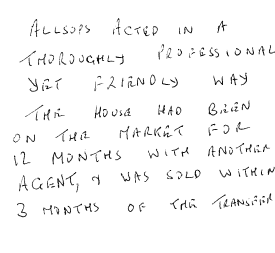 ALLSOPS ACTED IN A
THOROUGHLY PROFESSIONAL
YET FRIENDLY WAY
THE HOUSE HAD BEEN
ON THE MARKET FOR
12 MONTHS WITH ANOTHER
AGENT, & WAS SOLD WITHIN
3 MONTHS OF THE TRANSFER